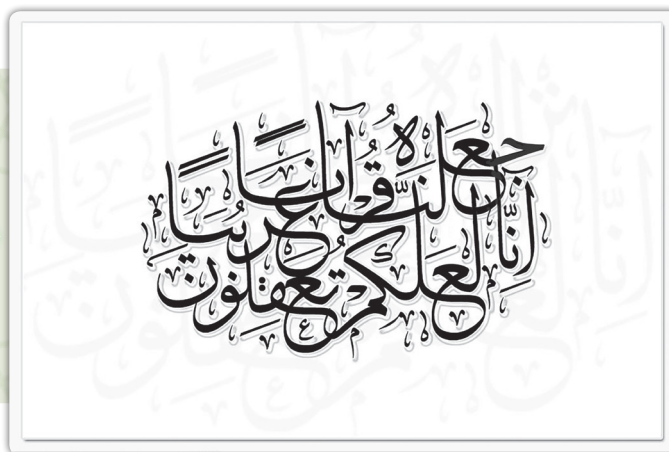 إنا جعلنه قرآنا عربيا
لعلكم تعقلون